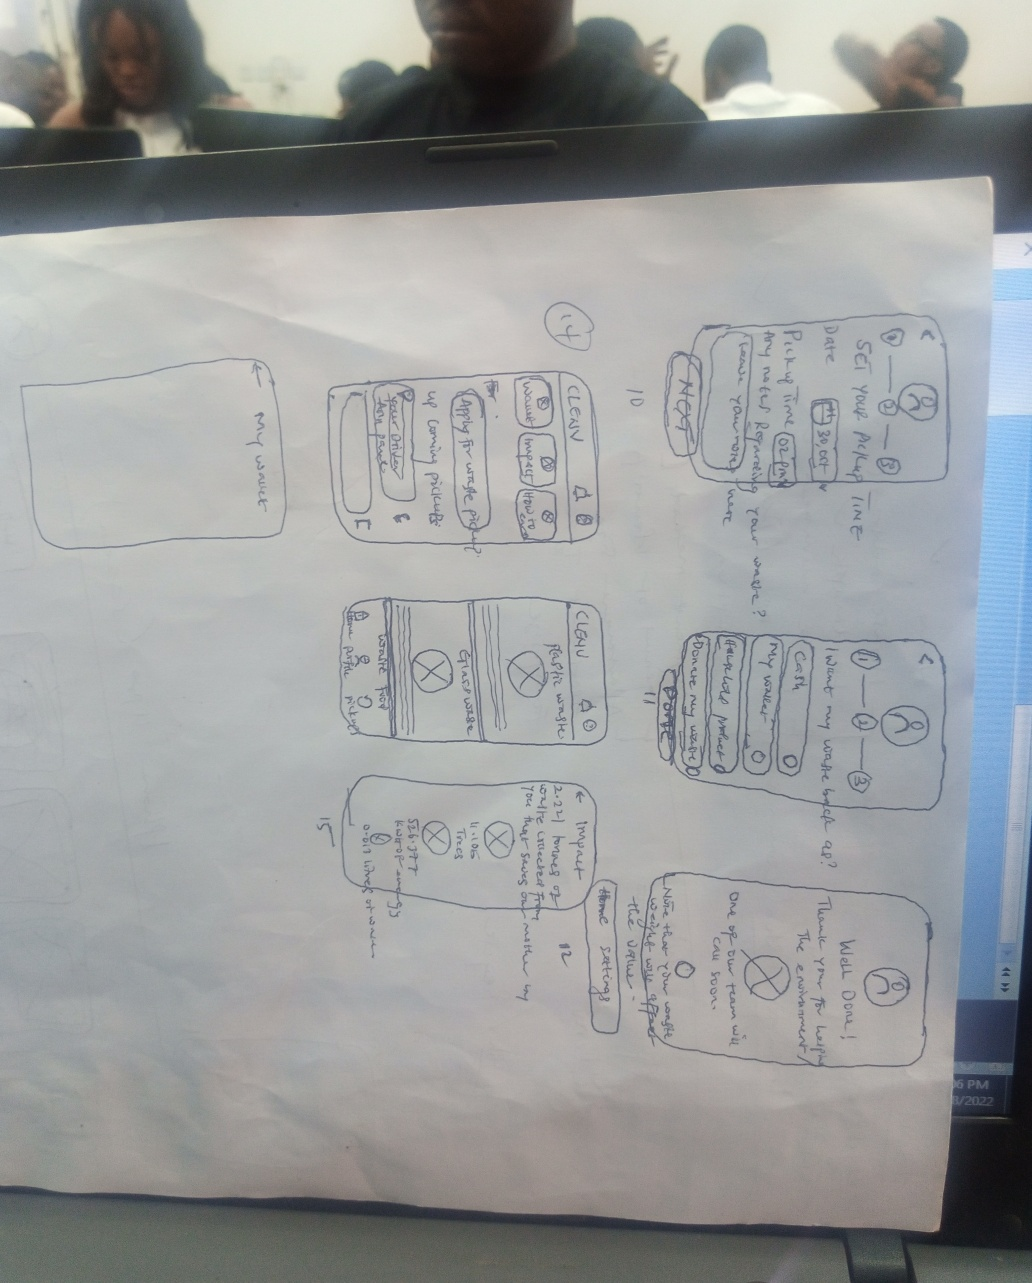 <
1 2 3
SET YOUR PICKUP TIME
Date 30 Oct
Pickup Time 02 pm
Any notes Regarding your waste?
Leave your notes here
NEXT
10
<
1 2 3
I want my waste back as?
Cash
My wallet
Household product
Donate my waste
Done
11
Well Done!
Thank your for helping
The environment!
One of our team will
call soon.
Note that your waste
weight will affect
the value.
Home settings
12
14
CLENV
Wallet Impact How to
Apply for waste pickup?
up coming pickups
your Driver
CLENV
Plastic waste
Glass waste
Waste food
Home profile pickups
← Impact
2.221 tonnes of
waste collected from
you that saves our mother by
11.106
Trees
526.377
KW of energy
0.017 litres of water
15
← My wallet
06 PM
8/2022